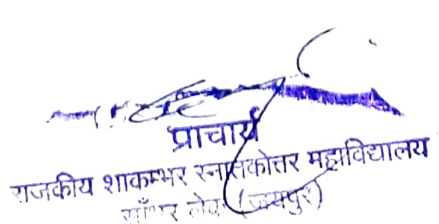 प्राचार्य
राजकीय शाकम्भर स्नातकोत्तर महाविद्यालय
साँभर लेक (जयपुर)